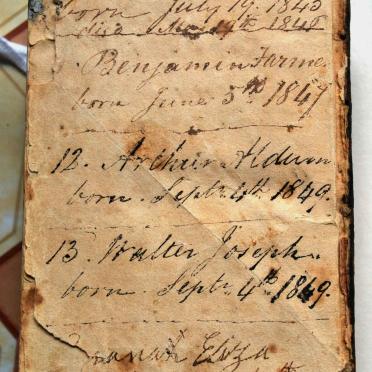 born July 19. 1845
died 19th 1846
Benjamin Farme
born June 5th 1847
12. Arthur Aldum
born Septr 4th 1849.
13. Walter Joseph.
born Septr 4th 1849.
Eliza